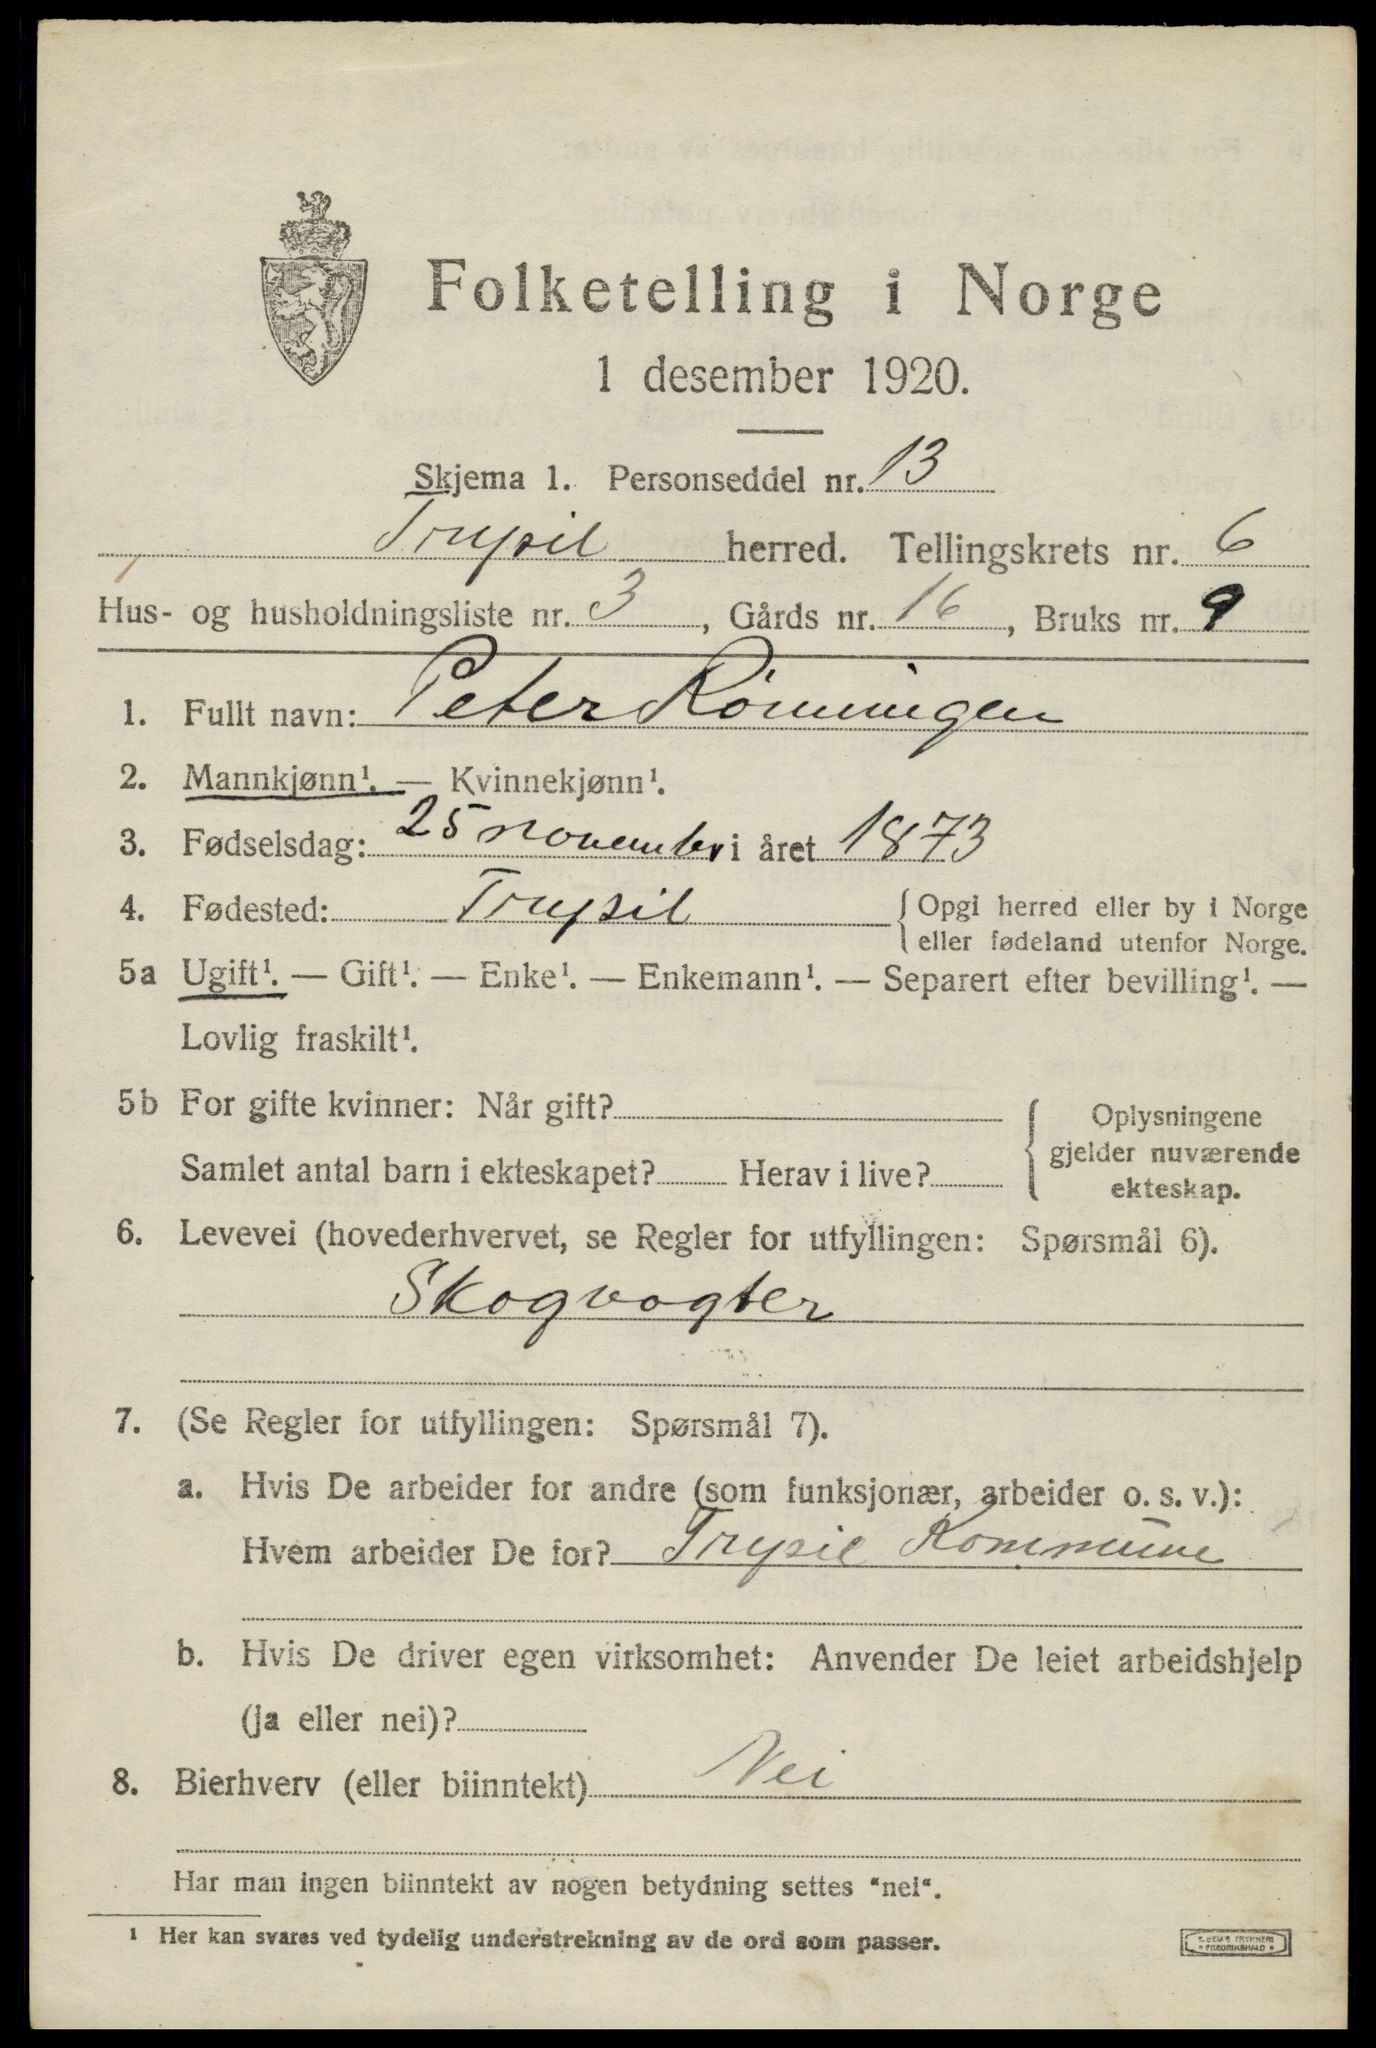 Folketelling i Norge
1 desember 1920.
Skjema 1. Personseddel nr. 13
Trysil herred. Tellingskrets nr. 6
Hus- og husholdningsliste nr. 3, Gårds nr. 16, Bruks nr. 9
1. Fullt navn: Peter Rønningen
2. Mannkjønn¹. — Kvinnekjønn¹.
3. Fødselsdag: 25 november i året 1873
4. Fødested: Trysil { Opgi herred eller by i Norge
eller fødeland utenfor Norge.
5a Ugift¹. — Gift¹. — Enke¹. — Enkemann¹. — Separert efter bevilling¹. —
Lovlig fraskilt¹.
5b For gifte kvinner: Når gift?
Samlet antal barn i ekteskapet? Herav i live?
{ Oplysningene
gjelder nuværende
ekteskap.
6. Levevei (hovederhvervet, se Regler for utfyllingen: Spørsmål 6).
Skogvogter
7. (Se Regler for utfyllingen: Spørsmål 7).
a. Hvis De arbeider for andre (som funksjonær, arbeider o. s. v.):
Hvem arbeider De for? Trysil Kommune
b. Hvis De driver egen virksomhet: Anvender De leiet arbeidshjelp
(ja eller nei)?
8. Bierhverv (eller biinntekt) Nei
Har man ingen biinntekt av nogen betydning settes "nei".
¹ Her kan svares ved tydelig understrekning av de ord som passer.